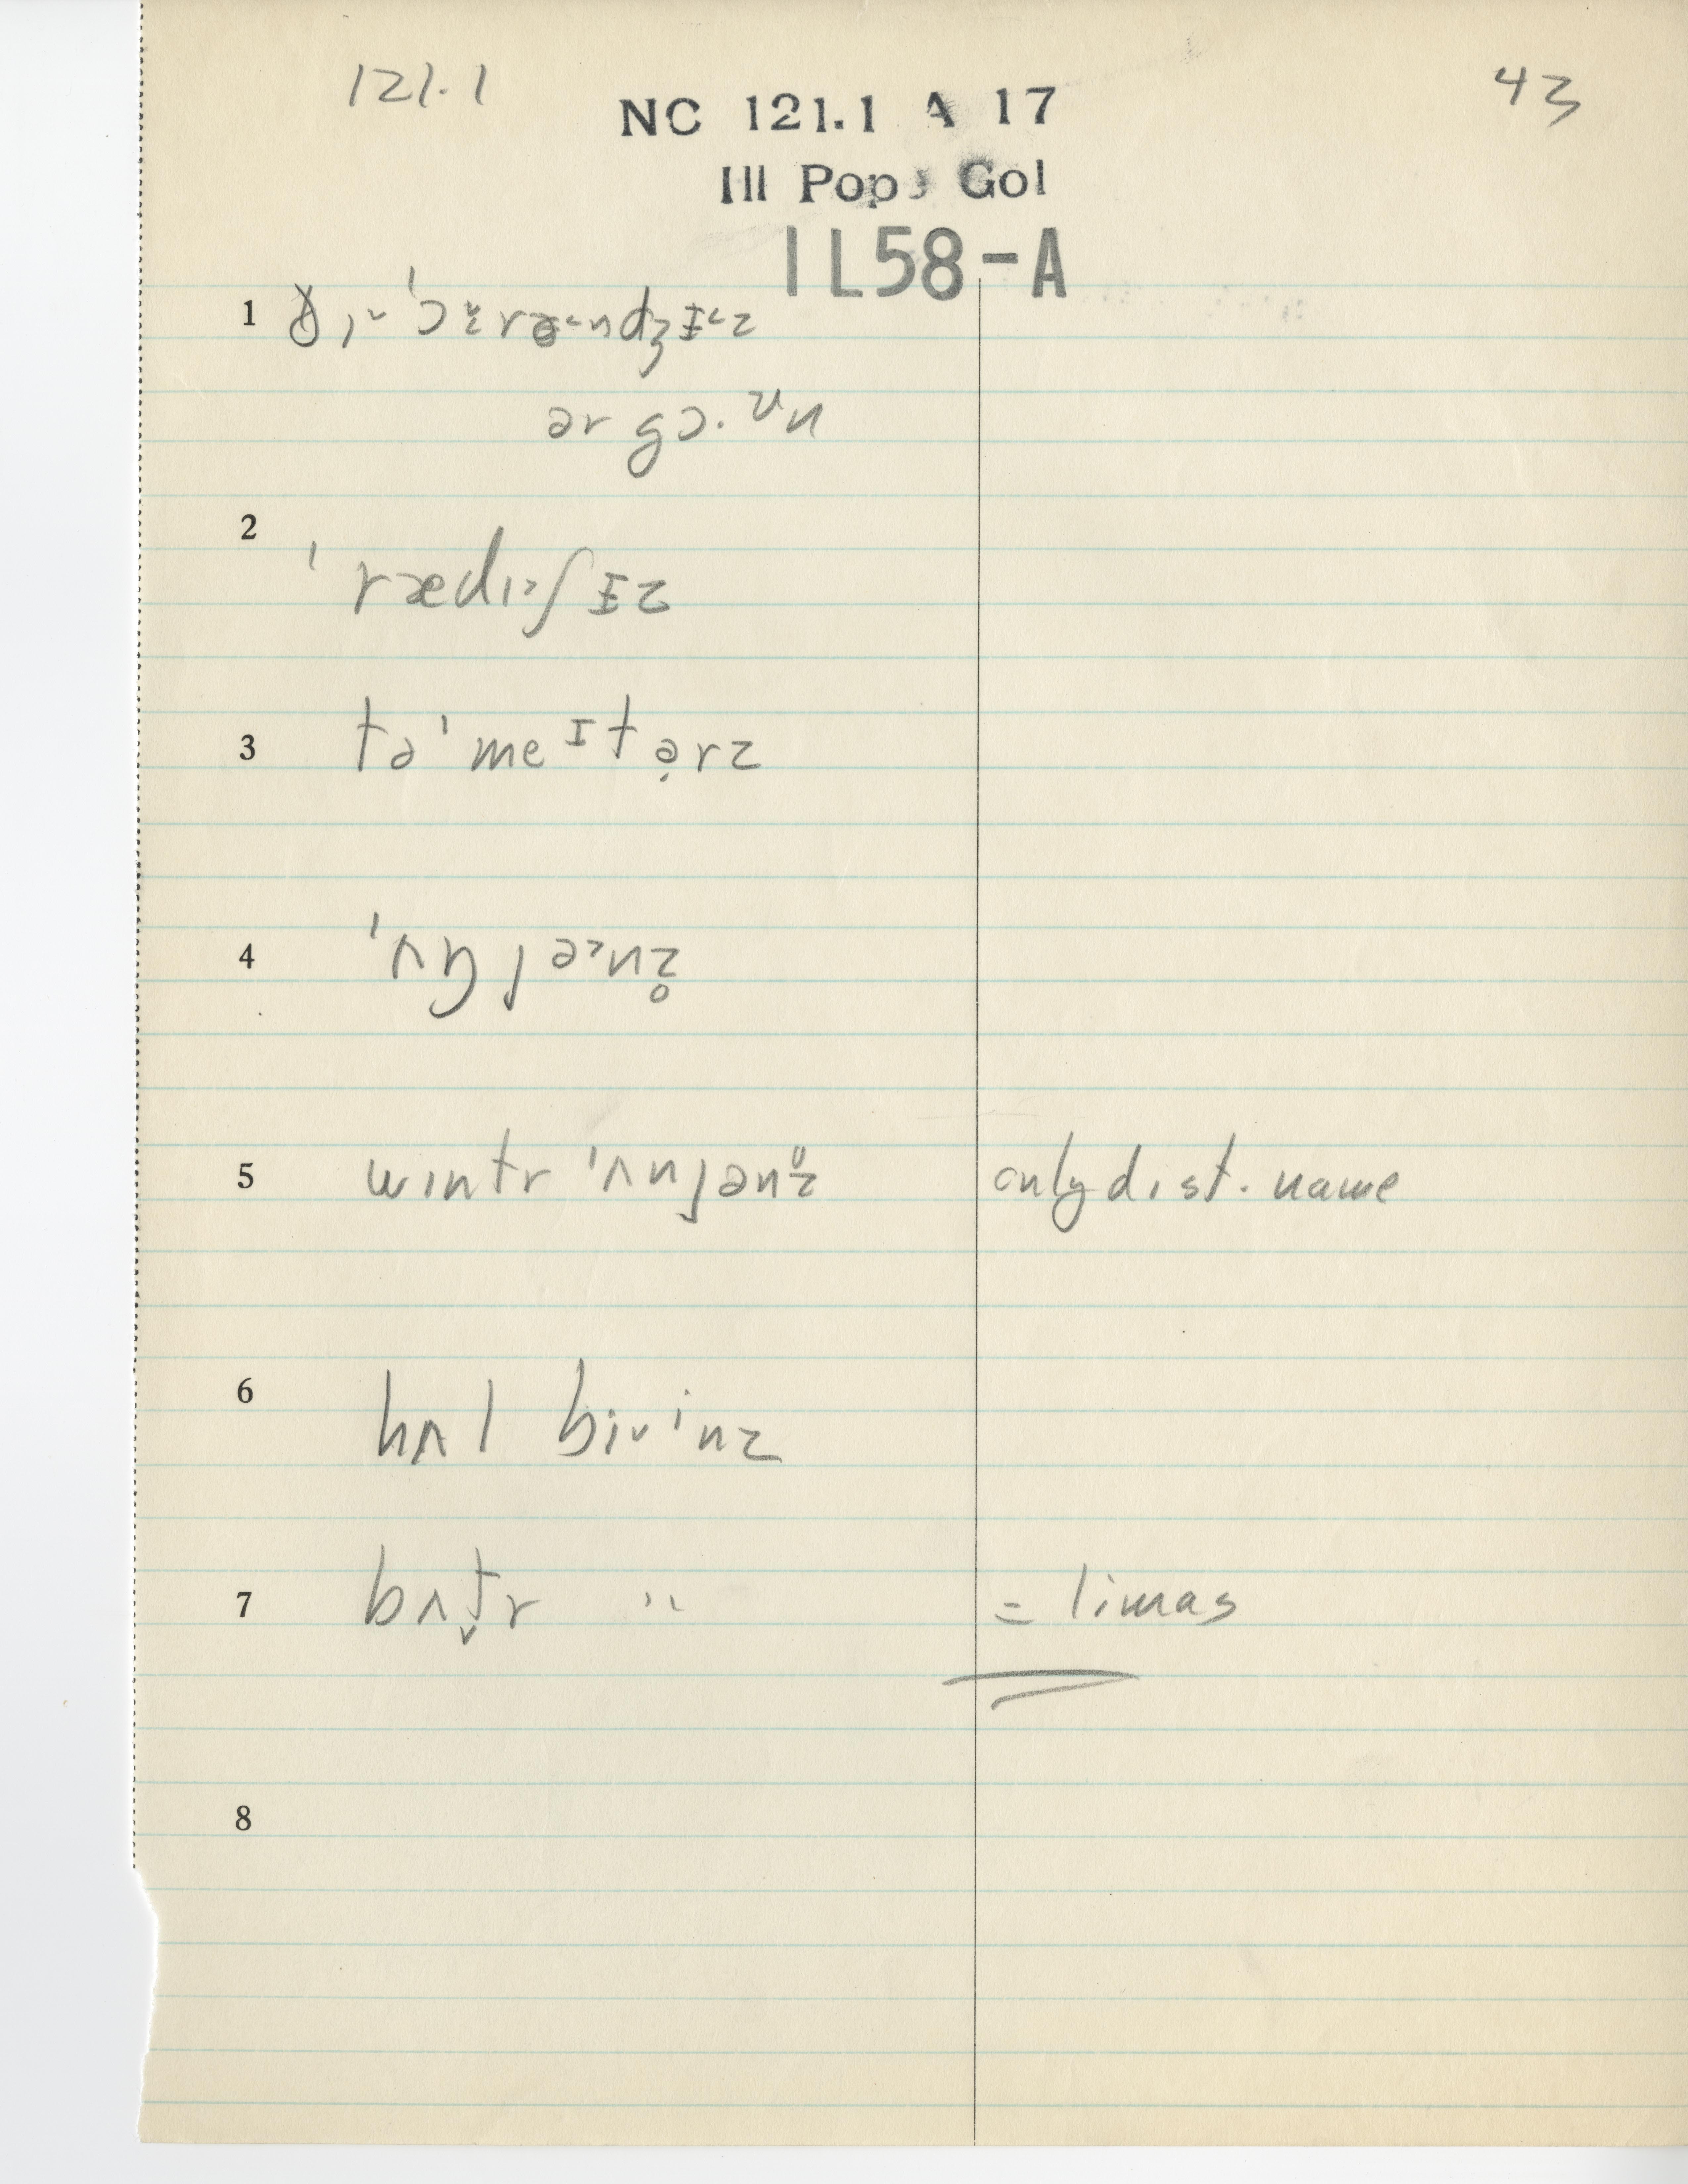 121.1
43
NC 121.1 A 17
Ill Pop Gol
IL58-A
1
ər gɔ·ᶷn
2 ˈrædɪ˃ʃɪz
3 təˈmeᴵtə̣rz
4 ˈʌŋjə˃nz̥
5 wɪntr ˈʌnjənz̥ only dist. name
6 hʌl bi˅ˈinz
7 bʌt̬r " = limas
8